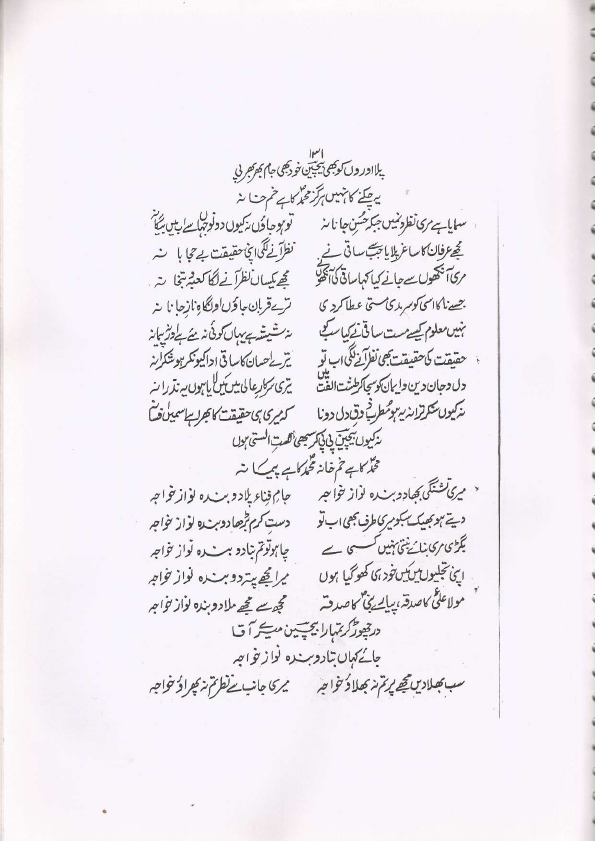 ۱۳۱
پلا اوروں کو بھی بیچین خود بھی جام بھر بھر پی
یہ چکنے کا نہیں ہرگز محمدؐ کا ہے خم خانہ
سمایا ہے مری نظروں میں جبکہ حُسنِ جانانہ تو ہو جاؤں نہ کیوں دونوں جہاں سے اپنے بیگانہ
مجھے عرفان کا ساغر پلایا جب سے ساقی نے نظر آنے لگی اپنی حقیقت بے حجابانہ
مری آنکھوں سے جانے کیا کہا ساقی کی آنکھوں نے مجھے یکساں نظر آنے لگا کعبہ و بتخانہ
جسے تاکا اسی کو سرمدی مستی عطا کر دی ترے قربان جاؤں او نگاہِ نازِ جانانہ
نہیں معلوم کیسے مست ساقی نے کیا سب کو نہ شیشہ ہے یہاں کوئی نہ مئے ہے اور نہ پیمانہ
حقیقت کی حقیقت بھی نظر آنے لگی اب تو تیرے احسان کا ساقی ادا کیونکر ہو شکرانہ
دل و جان دین و ایمان کو سجا کر طشتِ الفت میں تیری سرکارِ عالی میں میں لایا ہوں یہ نذرانہ
نہ کیوں شکر ترانہ یہ ہو مُطرب ذوقِ دل دونا کہ میری ہی حقیقت کا بھرا ہے اسمیں افسانہ
نہ کیوں بیچین پی پی کر سبھی مستِ الستی ہوں
محمدؐ کا ہے خم خانہ محمدؐ کا ہے پیمانہ
میری تشنگی بجھا دو بندہ نواز خواجہ جامِ فناء پلا دو بندہ نواز خواجہ
دیتے ہو بھیک سب کو میری طرف بھی اب تو دستِ کرم بڑھا دو بندہ نواز خواجہ
بگڑی مری بنائے بنتی نہیں کسی سے چاہو تو تم بنا دو بندہ نواز خواجہ
اپنی تجلیوں میں میں خود ہی کھو گیا ہوں میرا مجھے پتہ دو بندہ نواز خواجہ
مولا علیؓ کا صدقہ، پیارے نبیؐ کا صدقہ مجھ سے مجھے ملا دو بندہ نواز خواجہ
در چھوڑ کر تمہارا بیچین میرے آقا
جائے کہاں بتا دو بندہ نواز خواجہ
سب بھلا دیں مجھے پر تم نہ بھلاؤ خواجہ میری جانب سے نظر تم نہ پھراؤ خواجہ